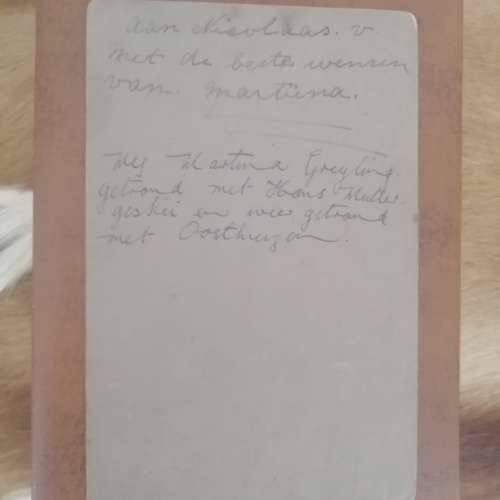 Aan Nicolaas. v.
met de beste wensen
van. Martiena.
Mej Martina Greyling
getroud met Hans Muller
geskei en weer getroud
met Oosthuizen.